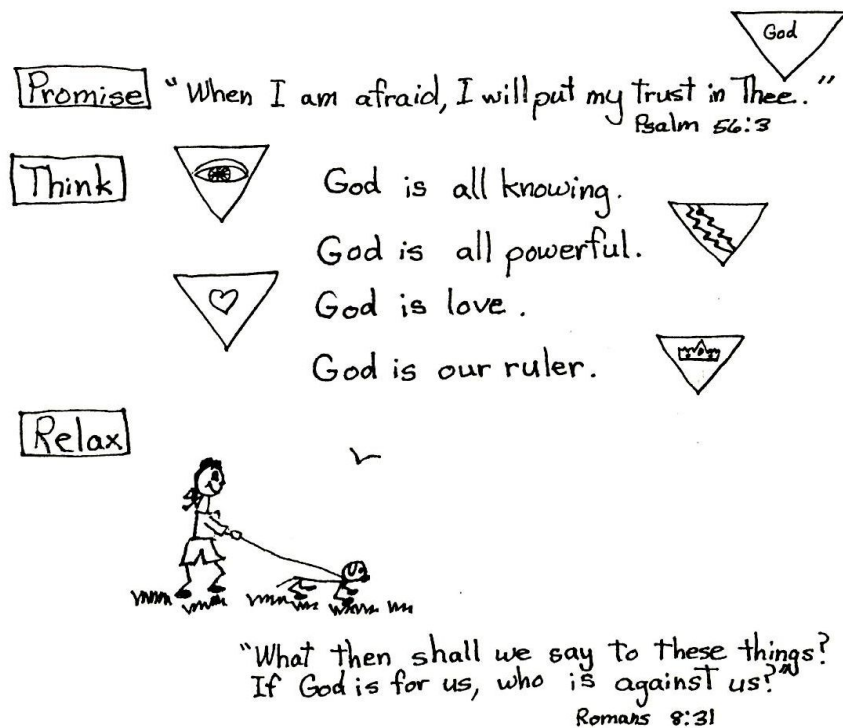 God
Promise "When I am afraid, I will put my trust in Thee."
Psalm 56:3
Think God is all knowing.
God is all powerful.
God is love.
God is our ruler.
Relax
"What then shall we say to these things?
If God is for us, who is against us?"
Romans 8:31